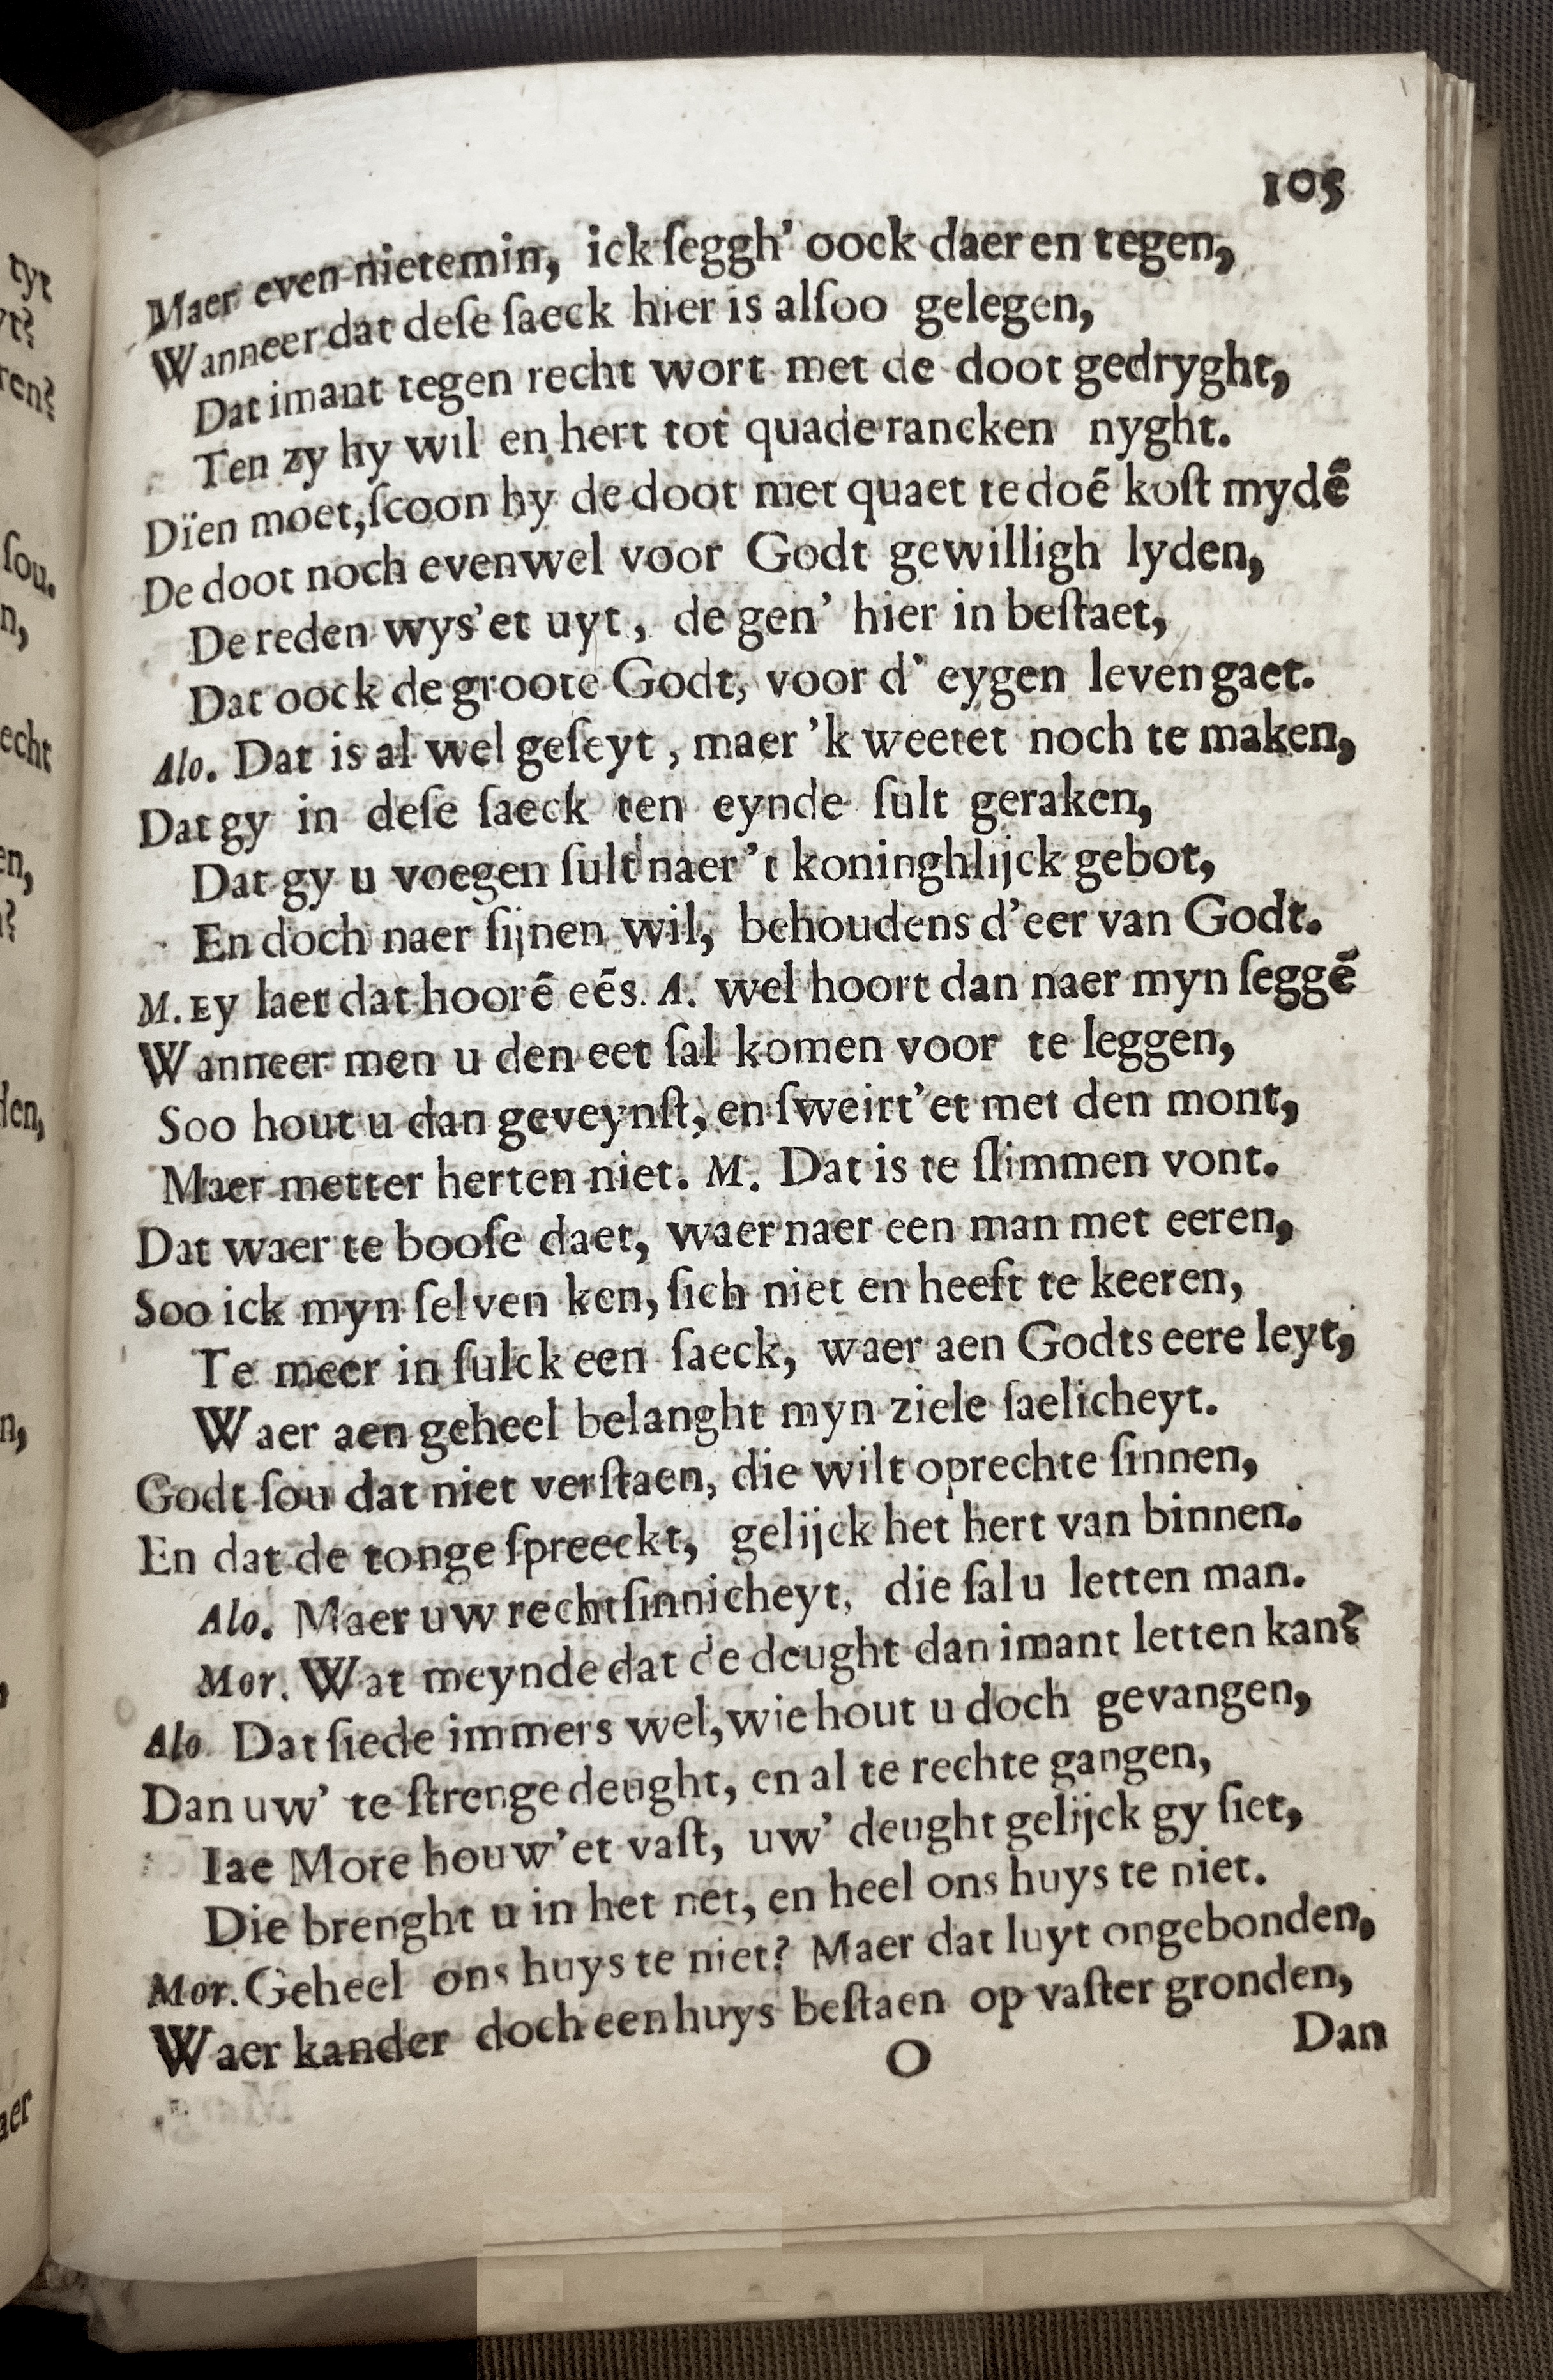 105
Maer even nietemin, ick ſeggh' oock daer en tegen,
Wanneer dat deſe ſaeck hier is alſoo gelegen,
Dat imant tegen recht wort met de doot gedryght,
Ten zy hy wil en hert tot quade rancken nyght.
Dïen moet, ſcoon hy de doot met quaet te doē koſt mydē
De doot noch evenwel voor Godt gewilligh lyden,
De reden wys'et uyt, de gen' hier in beſtaet,
Dat oock de groote Godt, voor d' eygen leven gaet.
Alo. Dat is al wel geſeyt, maer 'k weetet noch te maken,
Dat gy in deſe ſaeck ten eynde ſult geraken,
Dat gy u voegen ſult naer 't koninghlijck gebot,
En doch naer ſijnen wil, behoudens d'eer van Godt.
M. Ey laet dat hoorē eēs. A. wel hoort dan naer myn ſeggē
Wanneer men u den eet ſal komen voor te leggen,
Soo hout u dan geveynſt, en ſweirt'et met den mont,
Maer metter herten niet. M. Dat is te ſlimmen vont.
Dat waer te booſe daet, waer naer een man met eeren,
Soo ick myn ſelven ken, ſich niet en heeft te keeren,
Te meer in ſulck een ſaeck, waer aen Godts eere leyt,
Waer aen geheel belanght myn ziele ſaelicheyt.
Godt ſou dat niet verſtaen, die wilt oprechte ſinnen,
En dat de tonge ſpreeckt, gelijck het hert van binnen.
Alo. Maer uw rechtſinnicheyt, die ſal u letten man.
Mor. Wat meynde dat de deught dan imant letten kan?
Alo Dat ſiede immers wel, wie hout u doch gevangen,
Dan uw' te ſtrenge deught, en al te rechte gangen,
Iae More houw'et vaſt, uw' deught gelijck gy ſiet,
Die brenght u in het net, en heel ons huys te niet.
Mor. Geheel ons huys te niet? Maer dat luyt ongebonden,
Waer kander doch een huys beſtaen op vaſter gronden,
O Dan
tyt
't?
ren?
ſou.
n,
echt
en,
?
den,
n,
,
aer